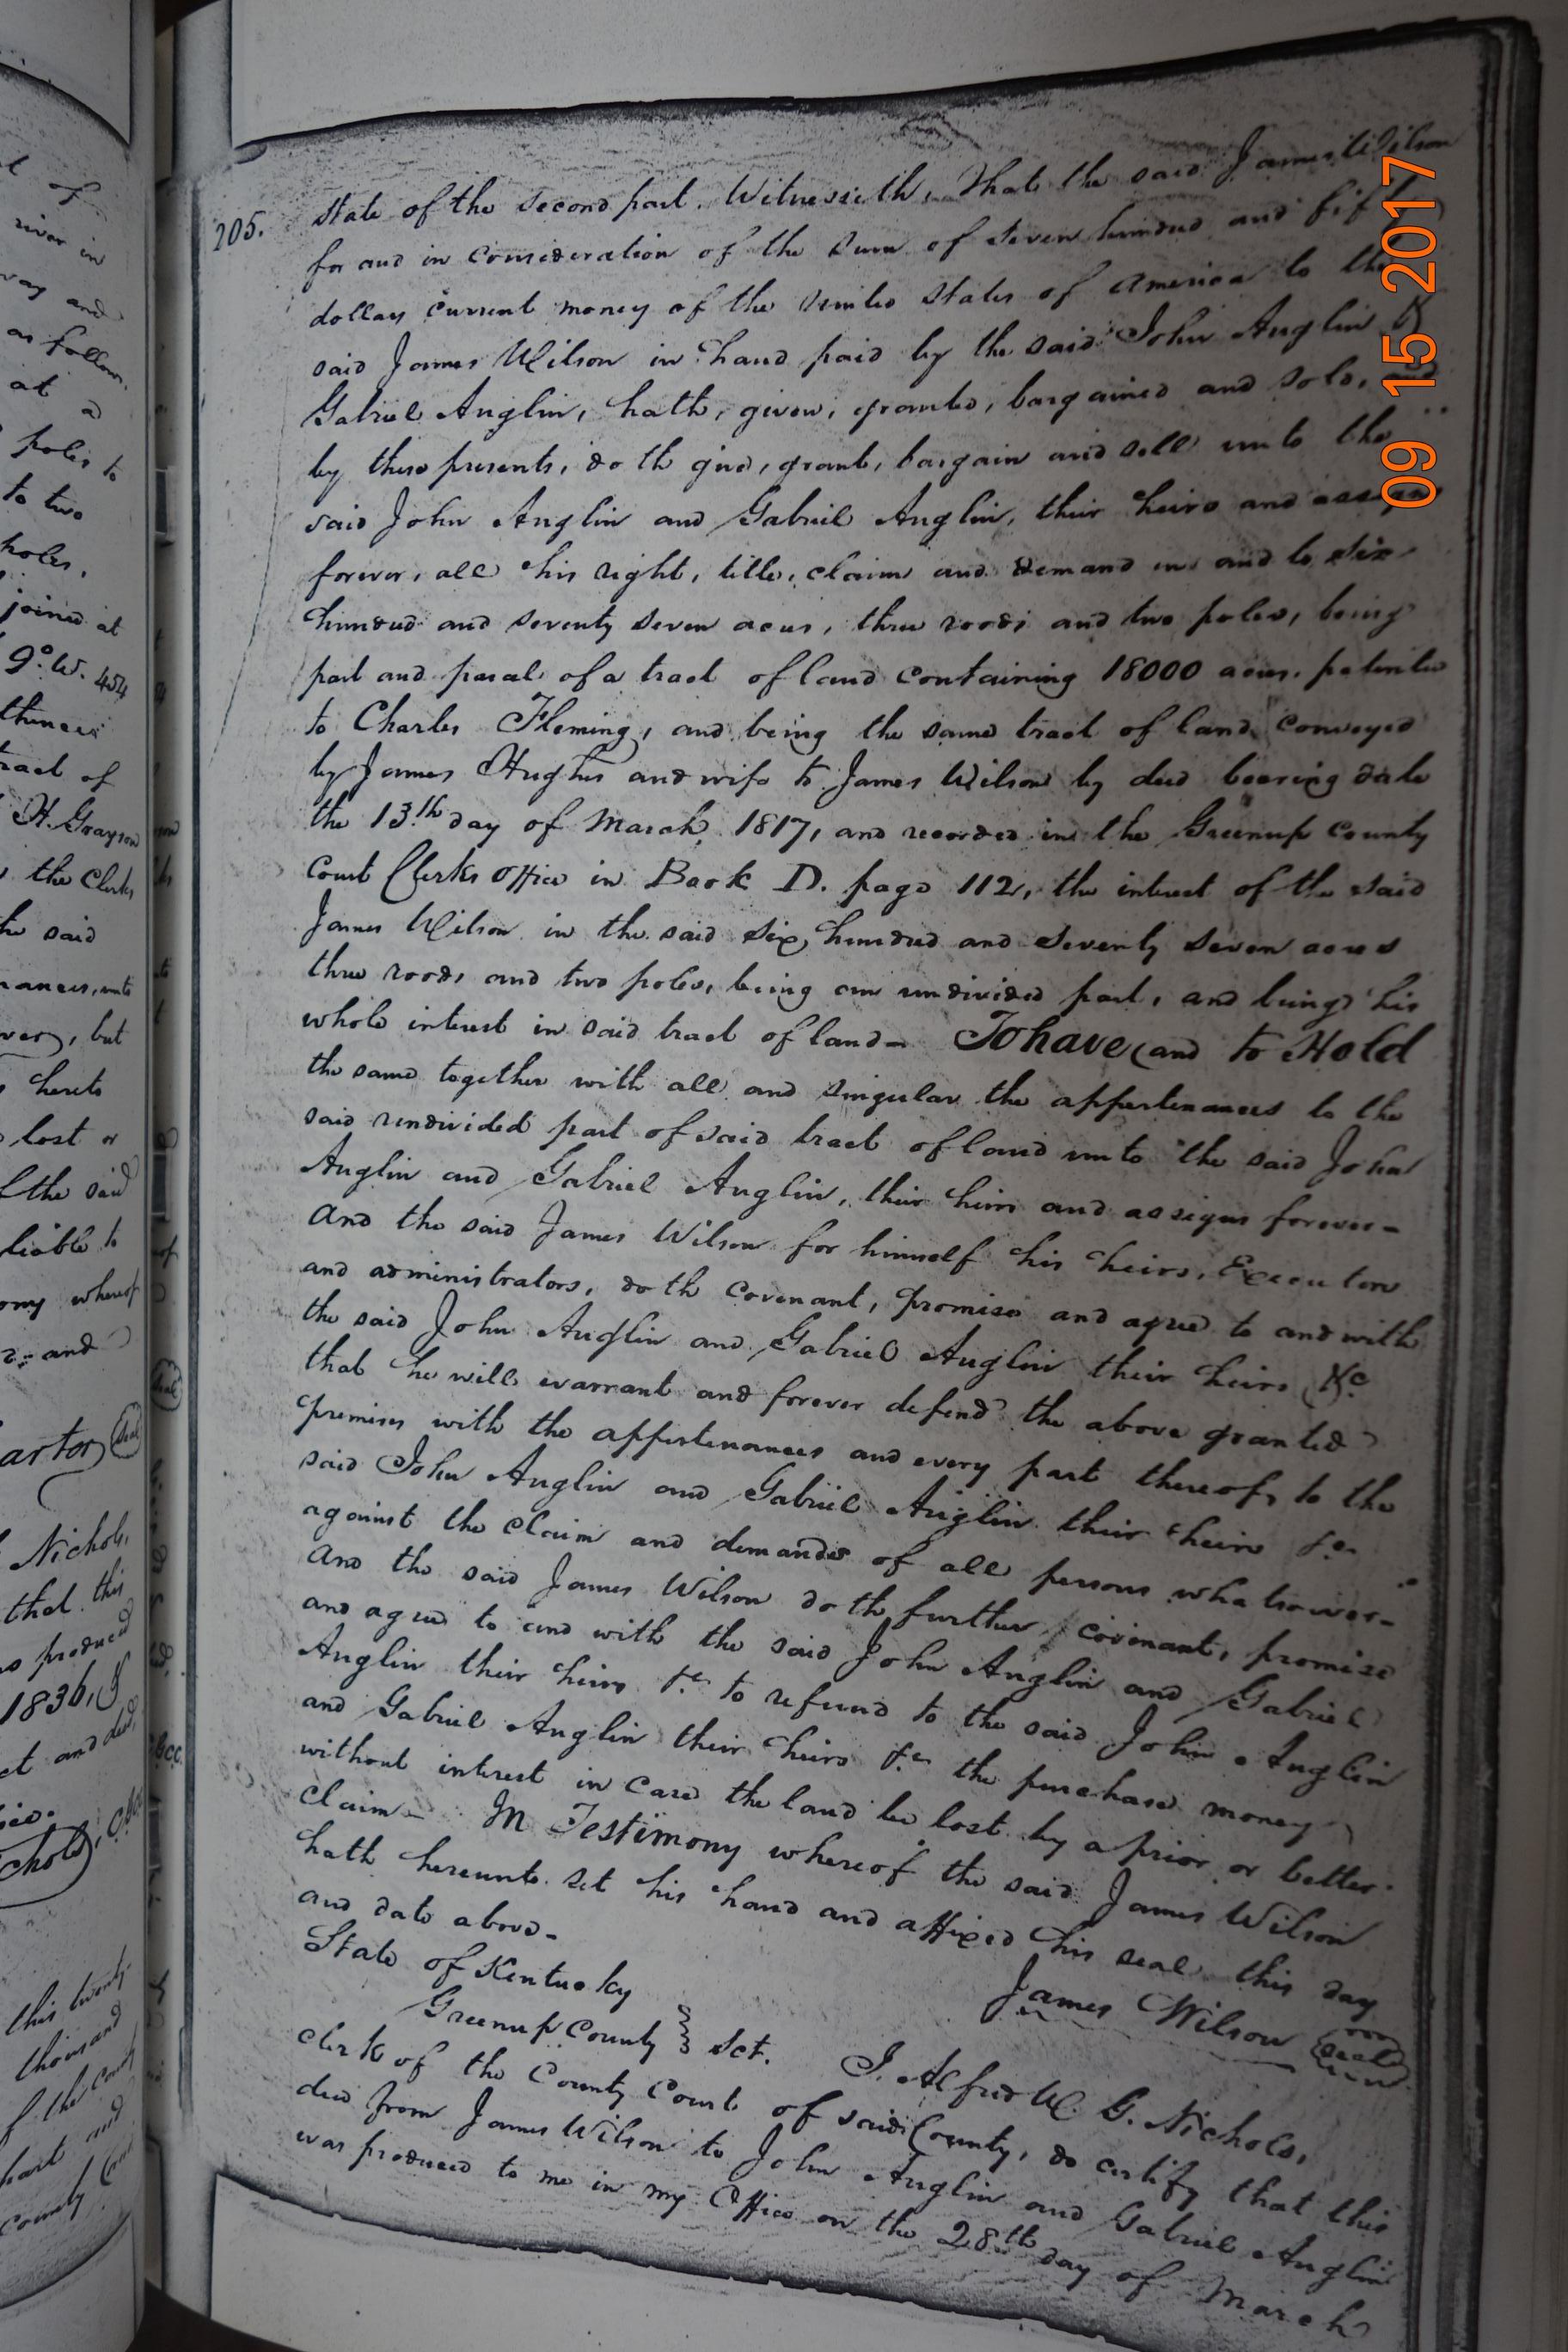 t of
river in
way and
as follow.
at a
poles to
to two
poles.
joined at
9° W. 454
thence
tract of
H. Grayson
the Clerks
he said
nances, unto
ver, but
hereto
lost or
f the said
liable to
ony whereof
and
arton Seal
Nichols,
that this
s produced
1836, &
ct and deed,
this twenty
thousand
f the County
part and
County
205.
State of the second part. Witnesseth, That the said James Wilson
for and in consideration of the sum of seven hundred and fif
dollars current money of the United States of America to the
said James Wilson in hand paid by the said John Anglin &
Gabriel Anglin, hath, given, granted, bargained and sold, and
by these presents, doth give, grant, bargain and sell unto the
said John Anglin and Gabriel Anglin, their heirs and assigns
forever, all his right, title, claim and demand in and to six
hundred and seventy seven acres, three roods and two poles, being
part and parcel of a tract of land containing 18000 acres, patented
to Charles Fleming, and being the same tract of land conveyed
by James Hughes and wife to James Wilson by deed bearing date
the 13th day of March 1817, and recorded in the Greenup County
Court Clerks office in Book D. page 112, the interest of the said
James Wilson in the said six hundred and seventy seven acres
three roods and two poles, being an undivided part, and being his
whole interest in said tract of land- To have and to Hold
the same together with all and singular the appertenances to the
said undivided part of said tract of land unto the said John
Anglin and Gabriel Anglin, their heirs and assigns forever-
And the said James Wilson for himself his heirs, Executors
and administrators, doth covenant, promise and agree to and with
the said John Anglin and Gabriel Anglin their heirs &c
that he will warrant and forever defend the above granted
premises with the appertenances and every part thereof, to the
said John Anglin and Gabriel Anglin their heirs &c.
against the claim and demands of all persons whatsoever-
And the said James Wilson doth further covenant, promise
and agree to and with the said John Anglin and Gabriel
Anglin their heirs &c to refund to the said John Anglin
and Gabriel Anglin their heirs &c the purchase money
without interest in case the land be lost by a prior or better
claim- In Testimony whereof the said James Wilson
hath hereunto set his hand and affixed his seal this day
and date above-
James Wilson Seal
State of Kentucky
Greenup County } Sct.
I. Alfred W. G. Nichols,
clerk of the County Court of said County, do certify that this
deed from James Wilson to John Anglin and Gabriel Anglin
was produced to me in my Office on the 28th day of March
09 15 2017